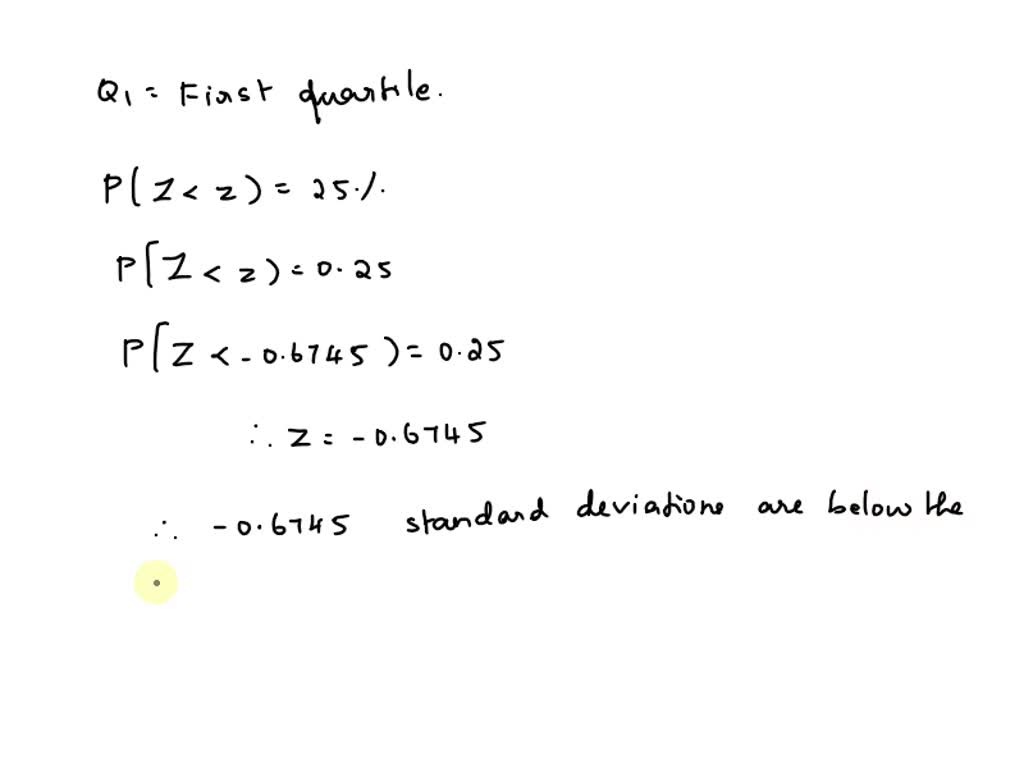 Q1 = First quartile.
P(Z < z) = 25%
P(Z < z) = 0.25
P(Z < -0.6745) = 0.25
∴ z = -0.6745
∴ -0.6745 standard deviations are below the